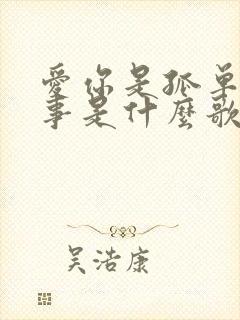 愛你是孤單
事是什麼歌
吴浩康